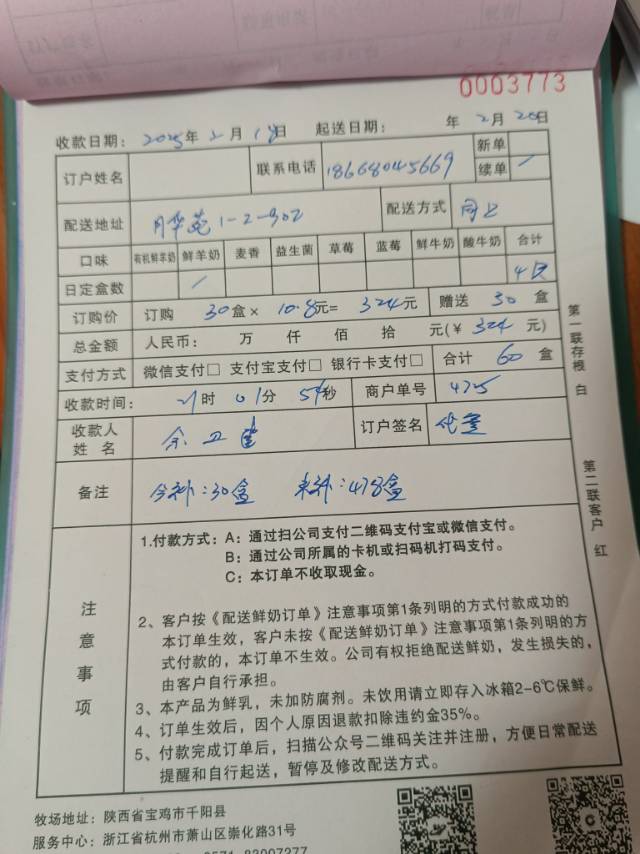 0003773
收款日期：2025年2月18日 起送日期： 年2月20日
订户姓名 联系电话 18668045669 新单
续单 /
配送地址 月华苑1-2-302 配送方式 同上
口味 有机鲜羊奶 鲜羊奶 麦香 益生菌 草莓 蓝莓 鲜牛奶 酸牛奶 合计
日定盒数 /
订购价 订购 30盒× 10.8元= 324元 赠送 30 盒
总金额 人民币： 万 仟 佰 拾 元(￥ 324 元)
支付方式 微信支付□ 支付宝支付□ 银行卡支付□ 合计 60 盒
收款时间： 21时 01分 54秒 商户单号 4725
收款人
姓 名 余卫建 订户签名
备注 今补：30盒 未补：478盒
注意事项
1.付款方式：A：通过扫公司支付二维码支付宝或微信支付。
B：通过公司所属的卡机或扫码机打码支付。
C：本订单不收取现金。
2、客户按《配送鲜奶订单》注意事项第1条列明的方式付款成功的
本订单生效，客户未按《配送鲜奶订单》注意事项第1条列明的方
式付款的，本订单不生效。公司有权拒绝配送鲜奶，发生损失的，
由客户自行承担。
3、本产品为鲜乳，未加防腐剂。未饮用请立即存入冰箱2-6℃保鲜。
4、订单生效后，因个人原因退款扣除违约金35%。
5、付款完成订单后，扫描公众号二维码关注并注册，方便日常配送
提醒和自行起送，暂停及修改配送方式。
牧场地址：陕西省宝鸡市千阳县
服务中心：浙江省杭州市萧山区崇化路31号
第一联存根 白
第二联客户 红